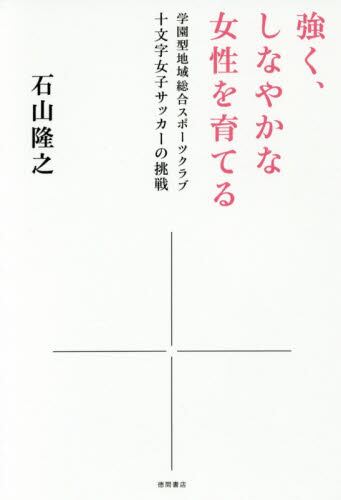 強く、
しなやかな
女性を育てる
学園型地域総合スポーツクラブ
十文字女子サッカーの挑戦
石山隆之
徳間書店